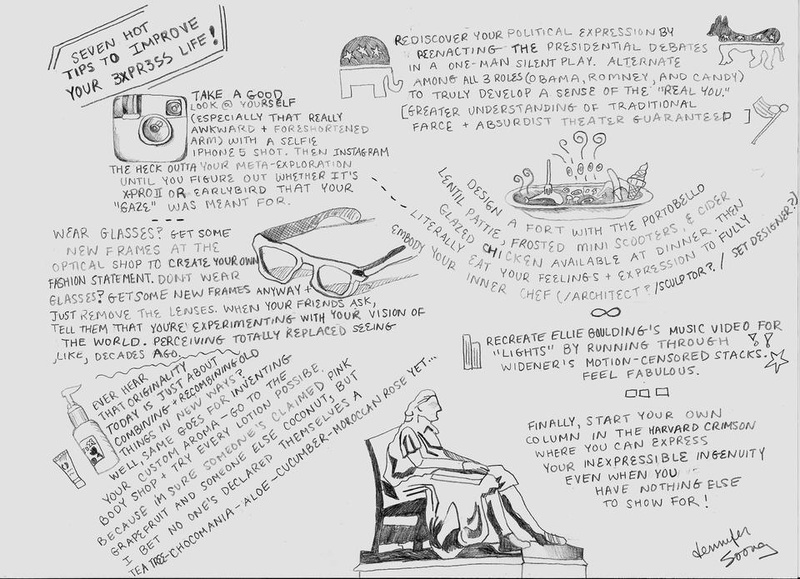 SEVEN HOT
TIPS TO IMPROVE
YOUR 3XPR3SS LIFE!
TAKE A GOOD
LOOK @ YOURSELF
(ESPECIALLY THAT REALLY
AWKWARD + FORESHORTENED
ARM) WITH A SELFIE
IPHONE 5 SHOT. THEN INSTAGRAM
THE HECK OUTTA YOUR META-EXPLORATION
UNTIL YOU FIGURE OUT WHETHER IT'S
X-PRO II OR EARLYBIRD THAT YOUR
"GAZE" WAS MEANT FOR.
WEAR GLASSES? GET SOME
NEW FRAMES AT THE
OPTICAL SHOP TO CREATE YOUR OWN
FASHION STATEMENT. DON'T WEAR
GLASSES? GET SOME NEW FRAMES ANYWAY +
JUST REMOVE THE LENSES. WHEN YOUR FRIENDS ASK,
TELL THEM THAT YOU'RE EXPERIMENTING WITH YOUR VISION OF
THE WORLD. PERCEIVING TOTALLY REPLACED SEEING
,LIKE, DECADES AGO.
EVER HEAR
THAT ORIGINALITY
TODAY IS JUST ABOUT
COMBINING + RECOMBINING OLD
THINGS IN NEW WAYS?
WELL, SAME GOES FOR INVENTING
YOUR CUSTOM AROMA - GO TO THE
BODY SHOP + TRY EVERY LOTION POSSIBE.
BECAUSE I'M SURE SOMEONE'S CLAIMED PINK
GRAPEFRUIT AND SOMEONE ELSE COCONUT, BUT
I BET NO ONE'S DECLARED THEMSELVES A
TEA TREE-CHOCOMANIA-ALOE-CUCUMBER-MOROCCAN ROSE YET...
REDISCOVER YOUR POLITICAL EXPRESSION BY
REENACTING THE PRESIDENTIAL DEBATES
IN A ONE-MAN SILENT PLAY. ALTERNATE
AMONG ALL 3 ROLES (OBAMA, ROMNEY, AND CANDY)
TO TRULY DEVELOP A SENSE OF THE "REAL YOU."
[GREATER UNDERSTANDING OF TRADITIONAL
FARCE + ABSURDIST THEATER GUARANTEED]
DESIGN A FORT WITH THE PORTOBELLO
LENTIL PATTIE, FROSTED MINI SCOOTERS, & CIDER
GLAZED CHICKEN AVAILABLE AT DINNER. THEN
LITERALLY EAT YOUR FEELINGS + EXPRESSION TO FULLY
EMBODY YOUR INNER CHEF (/ARCHITECT?/SCULPTOR?/SET DESIGNER?)
RECREATE ELLIE GOULDING'S MUSIC VIDEO FOR
"LIGHTS" BY RUNNING THROUGH
WIDENER'S MOTION-CENSORED STACKS.
FEEL FABULOUS.
FINALLY, START YOUR OWN
COLUMN IN THE HARVARD CRIMSON
WHERE YOU CAN EXPRESS
YOUR INEXPRESSIBLE INGENUITY
EVEN WHEN YOU
HAVE NOTHING ELSE
TO SHOW FOR!
Jennifer
Soong